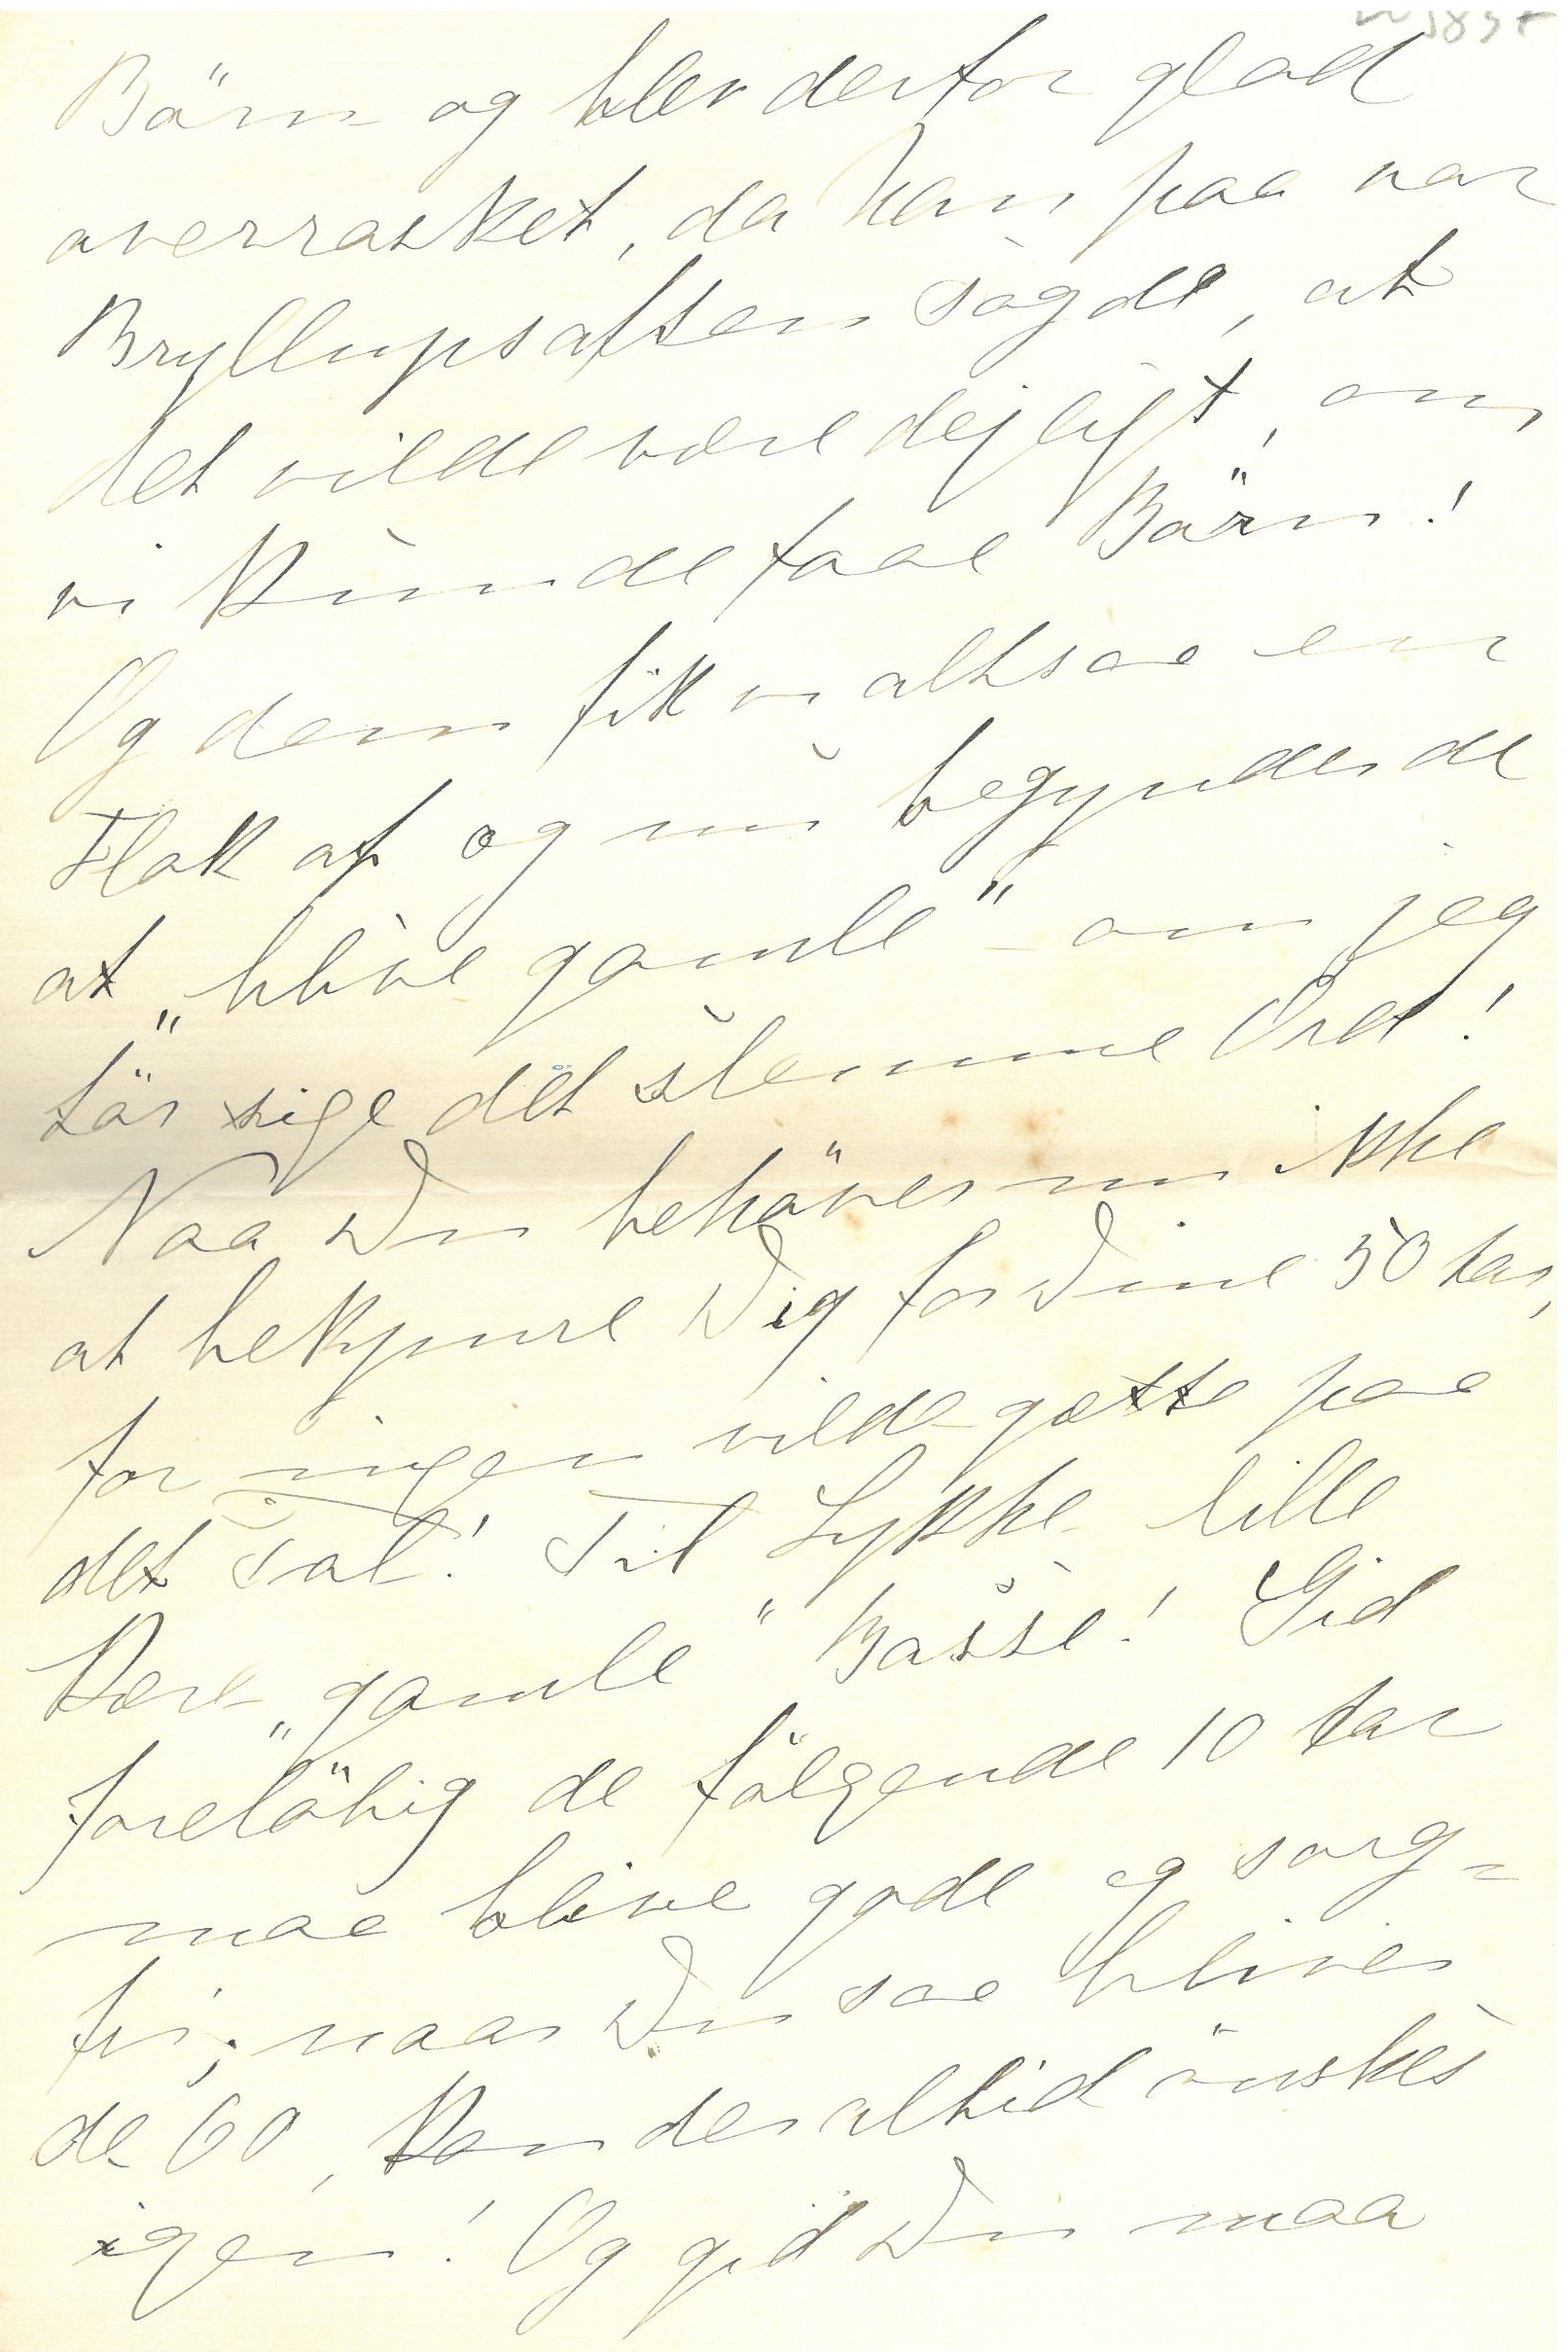 Börn og blev derfor glad
overrasket, da han paa vor
Bryllupsaften sagde, at
det vilde være dejligt, om
vi kunde faae Börn!
Og dem fik vi altsaa en
Flok af og nu begynder de
at „blive gamle" – om jeg
tör sige det slemme Ord!
Naa, Du behöver nu ikke
at bekymre Dig for Dine 50 Aar,
for ingen vilde gætte paa
det Tal! Til Lykke lille
kære „gamle" Basse! Gid
foreløbig de fölgende 10 Aar
maa blive gode og sorg=
fri; naar Du saa bliver
de 60, kan der altid önskes
igen! Og gid Du maa